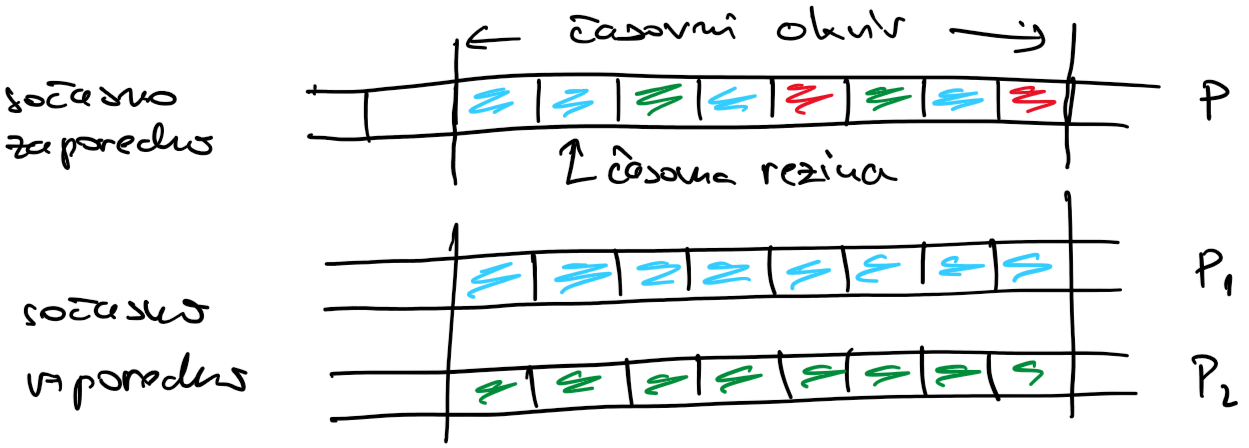 časovni okvir
sočasno
zaporedno
P
časovna rezina
P₁
sočasno
vzporedno
P₂